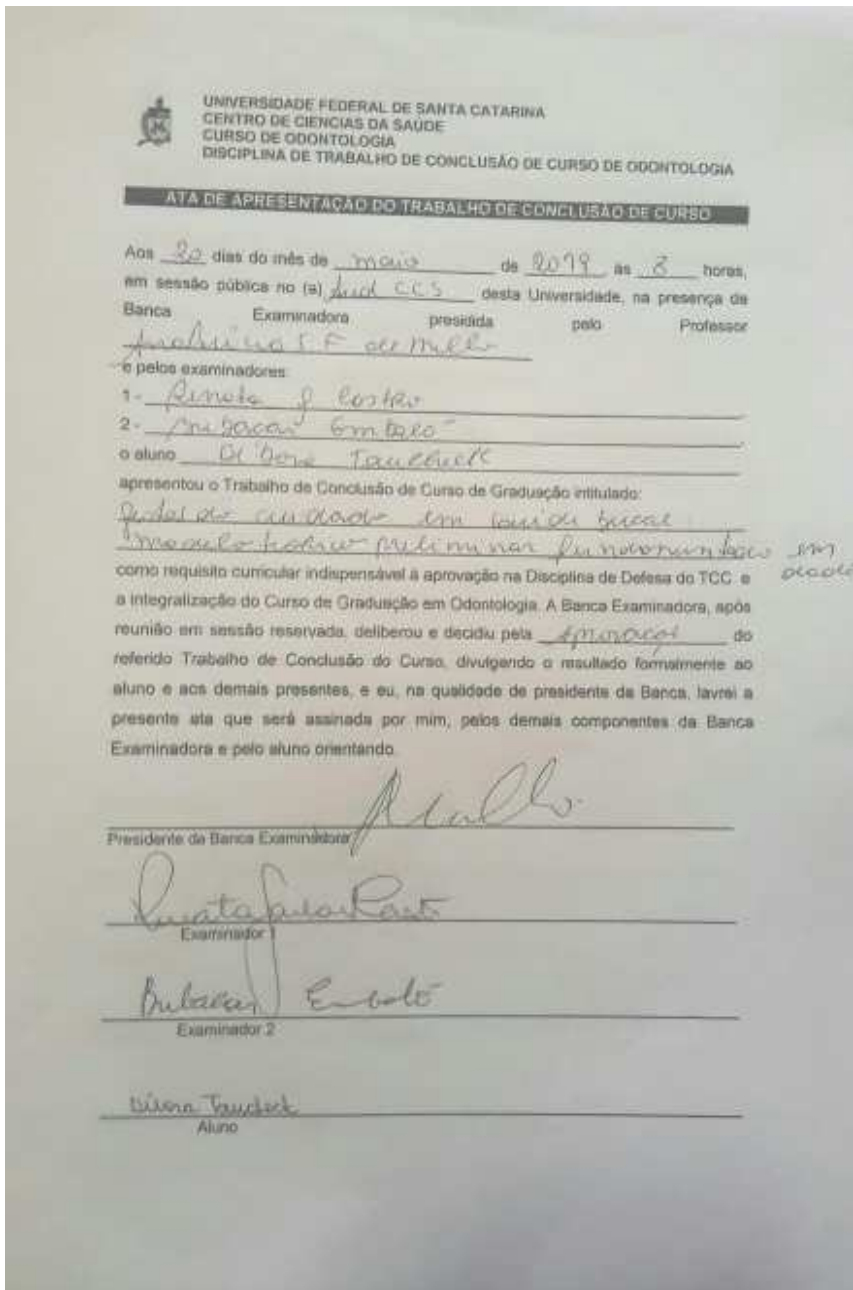 UNIVERSIDADE FEDERAL DE SANTA CATARINA
CENTRO DE CIENCIAS DA SAÚDE
CURSO DE ODONTOLOGIA
DISCIPLINA DE TRABALHO DE CONCLUSÃO DE CURSO DE ODONTOLOGIA
ATA DE APRESENTAÇÃO DO TRABALHO DE CONCLUSÃO DE CURSO
Aos 20 dias do mês de maio de 2019 às 8 horas,
em sessão pública no (a) Aud CCS desta Universidade, na presença da
Banca Examinadora presidida pelo Professor
de Mello
e pelos examinadores:
1 - Renata G Castro
2 - Bubacar Embaló
o aluno Débora Taucheck
apresentou o Trabalho de Conclusão de Curso de Graduação intitulado:
do cuidado em saúde bucal
modelo teórico preliminar em
como requisito curricular indispensável à aprovação na Disciplina de Defesa do TCC e
a integralização do Curso de Graduação em Odontologia. A Banca Examinadora, após
reunião em sessão reservada, deliberou e decidiu pela aprovação do
referido Trabalho de Conclusão do Curso, divulgando o resultado formalmente ao
aluno e aos demais presentes, e eu, na qualidade de presidente da Banca, lavrei a
presente ata que será assinada por mim, pelos demais componentes da Banca
Examinadora e pelo aluno orientando.
Presidente da Banca Examinadora
Examinador 1
Bubacar Embaló
Examinador 2
Aluno